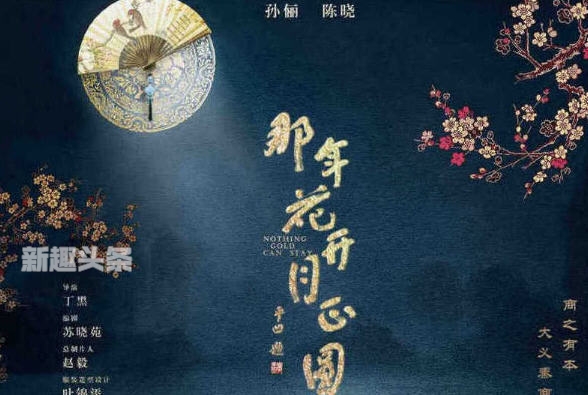 孙俪 陈晓
那年花开月正圆
NOTHING
GOLD
CAN STAY
新趣头条
导演
丁黑
编剧
苏晓苑
总制片人
赵毅
服装造型设计
商之有本
大义秦商